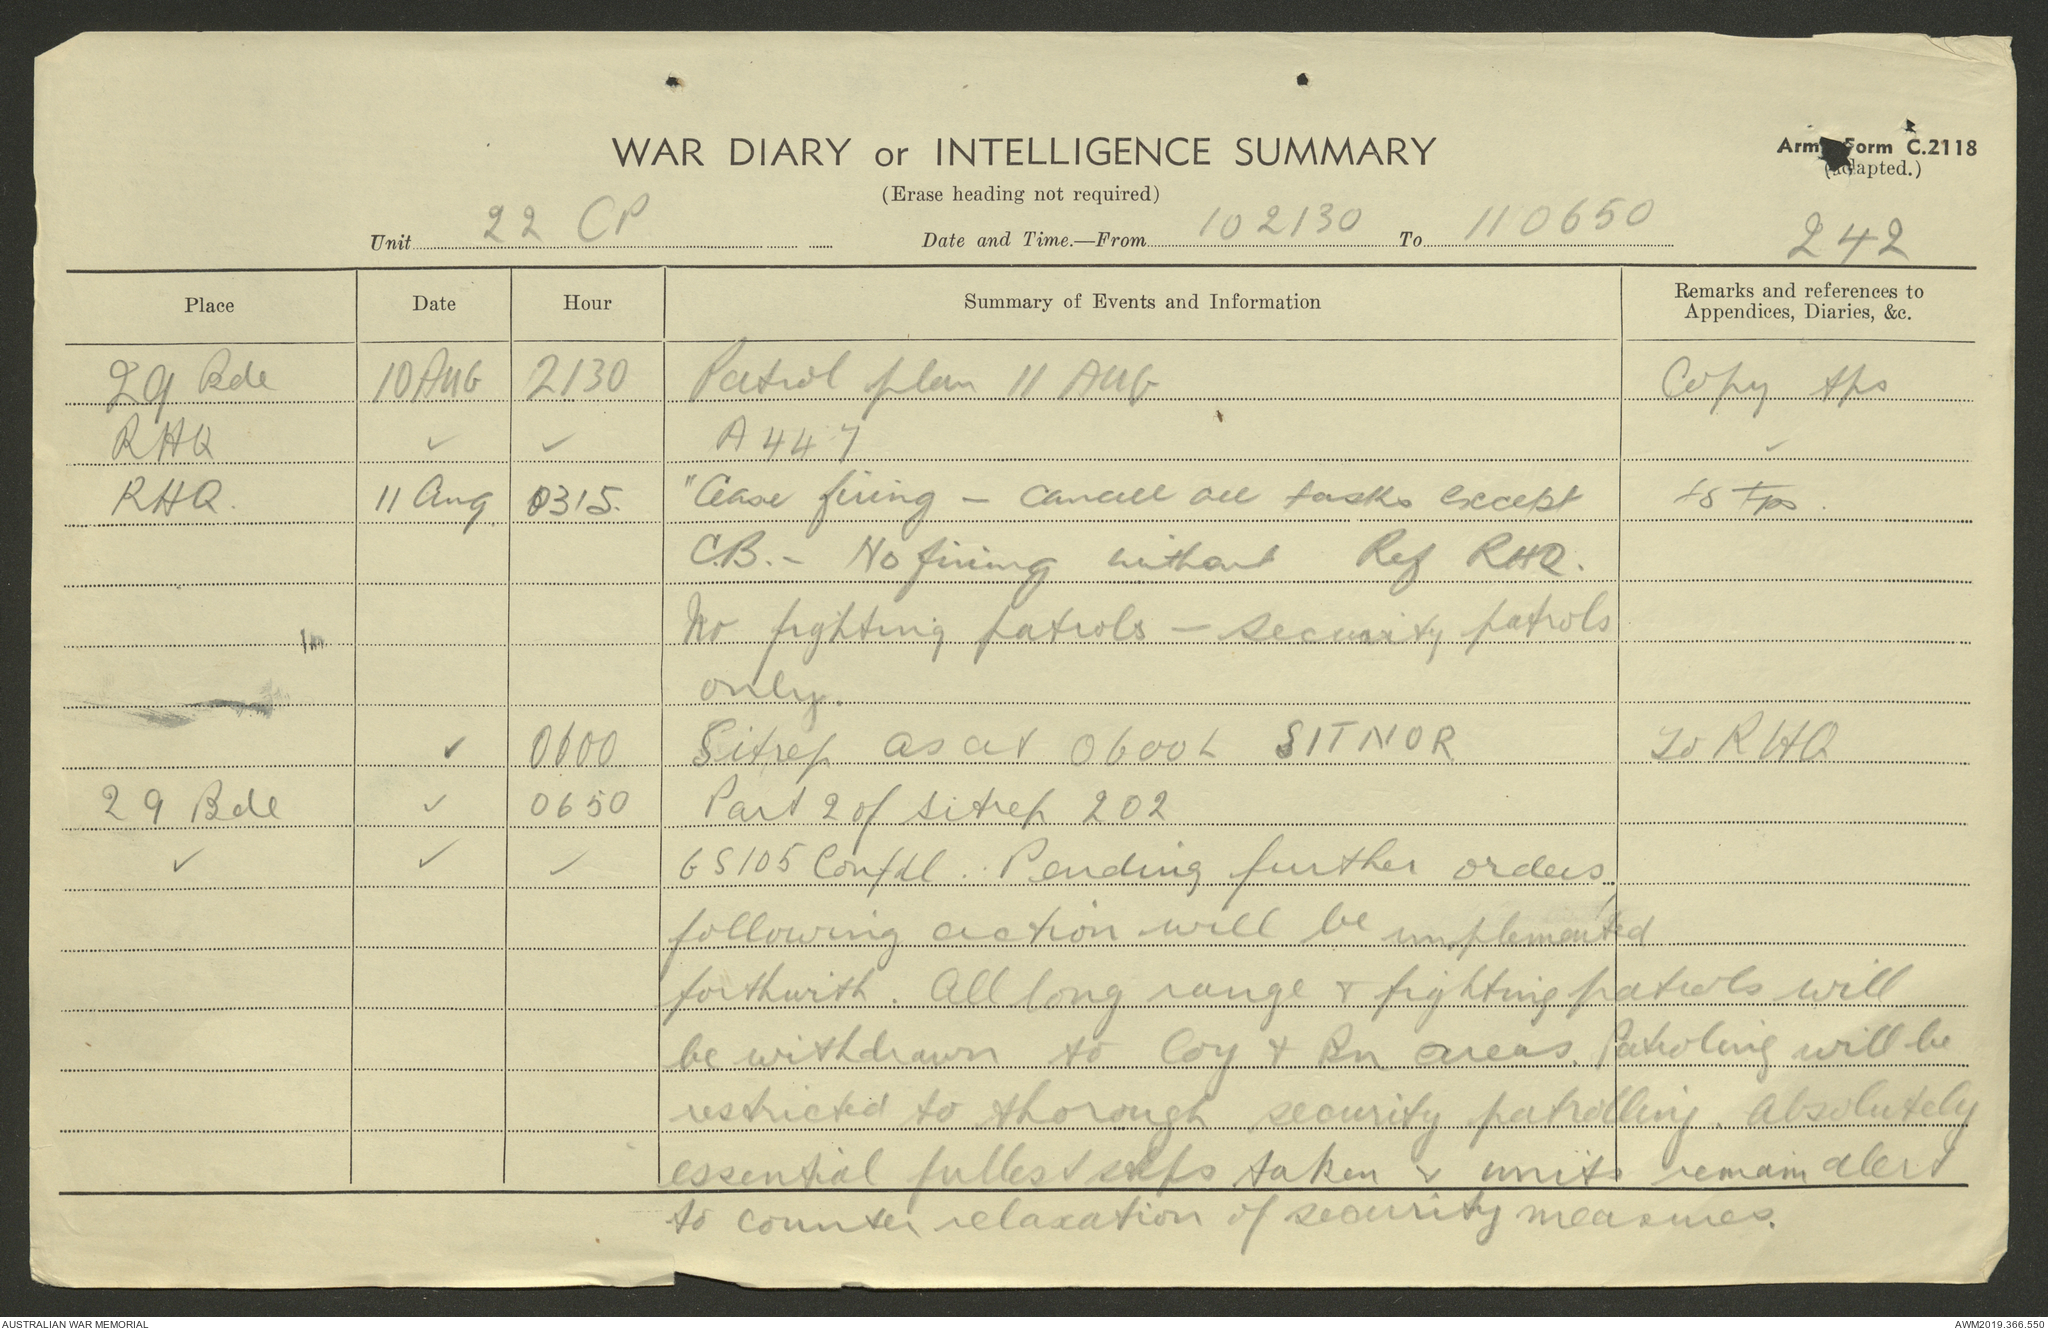 WAR DIARY or INTELLIGENCE SUMMARY
Army Form C.2118
(Erase heading not required)
(adapted.)
Unit 22 CP Date and Time.—From 102130 To 110650
242
Place Date Hour Summary of Events and Information Remarks and references to
Appendices, Diaries, &c.
29 Bde 10 AUG 2130 Patrol plan 11 AUG Copy tps
RHQ ✓ ✓ A447 ✓
RHQ. 11 Aug 0315. "Cease firing - cancel all tasks except to Tps.
C.B. - No firing without Ref RHQ.
No fighting patrols - security patrols
only.
✓ 0600 Sitrep as at 0600L SITNOR to RHQ
29 Bde ✓ 0650 Part 2 of sitrep 202
✓ ✓ ✓ GS105 Confdl. Pending further orders,
following action will be implemented
forthwith. All long range & fighting patrols will
be withdrawn to Coy & Bn areas. Patroling will be
restricted to thorough security patrolling. Absolutely
essential fullest steps taken & units remain alert
to counter relaxation of security measures.
AUSTRALIAN WAR MEMORIAL
AWM2019.366.550